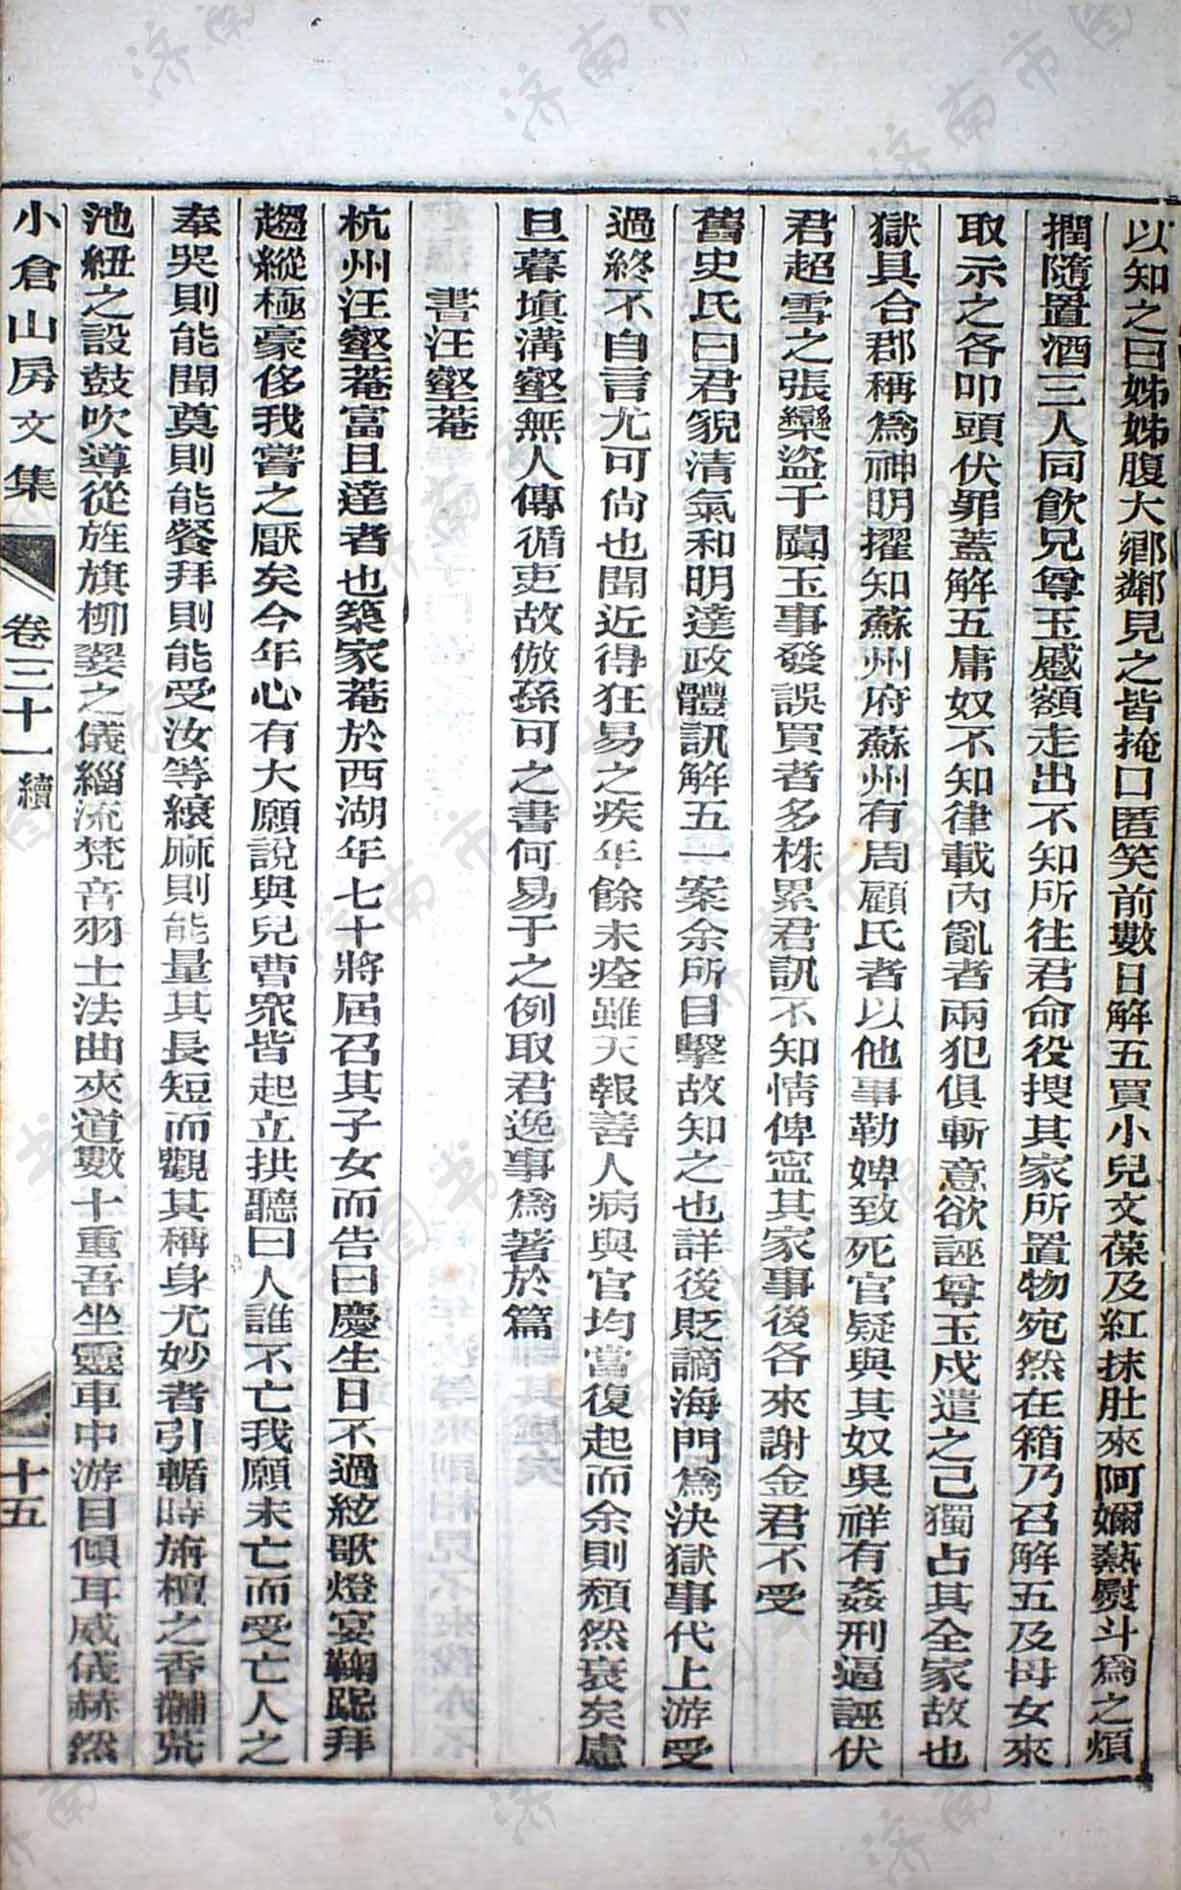 以知之曰姊姊腹大鄉鄰見之皆掩口匿笑前數日解五買小兒文葆及紅抹肚來阿嬭熱熨斗為之煩
撋隨置酒三人同飲兄尊玉慼額走出不知所往君命役搜其家所置物宛然在箱乃召解五及母女來
取示之各叩頭伏罪蓋解五庸奴不知律載內亂者兩犯俱斬意欲誣尊玉戍遣之己獨占其全家故也
獄具合郡稱為神明擢知蘇州府蘇州有周顧氏者以他事勒婢致死官疑與其奴吳祥有姦刑逼誣伏
君超雪之張欒盜于闐玉事發誤買者多株累君訊不知情俾寍其家事後各來謝金君不受
舊史氏曰君貌清氣和明達政體訊解五一案余所目擊故知之也詳後貶謫海門為決獄事代上游受
過終不自言尤可尚也聞近得狂易之疾年餘未痊雖天報善人病與官均當復起而余則頹然衰矣慮
旦暮填溝壑無人傳循吏故倣孫可之書何易于之例取君逸事為著於篇
書汪壑菴
杭州汪壑菴富且達者也築家菴於西湖年七十將屆召其子女而告曰慶生日不過絃歌燈宴鞠跽拜
趨縱極豪侈我嘗之厭矣今年心有大願說與兒曹眾皆起立拱聽曰人誰不亡我願未亡而受亡人之
奉哭則能聞奠則能餐拜則能受汝等縗麻則能量其長短而觀其稱身尤妙者引輴時旃檀之香黼荒
池紐之設鼓吹導從旌旗栁翣之儀緇流梵音羽士法曲夾道數十重吾坐靈車中游目傾耳威儀赫然
小倉山房文集 卷三十一 續 十五
济南市图书馆